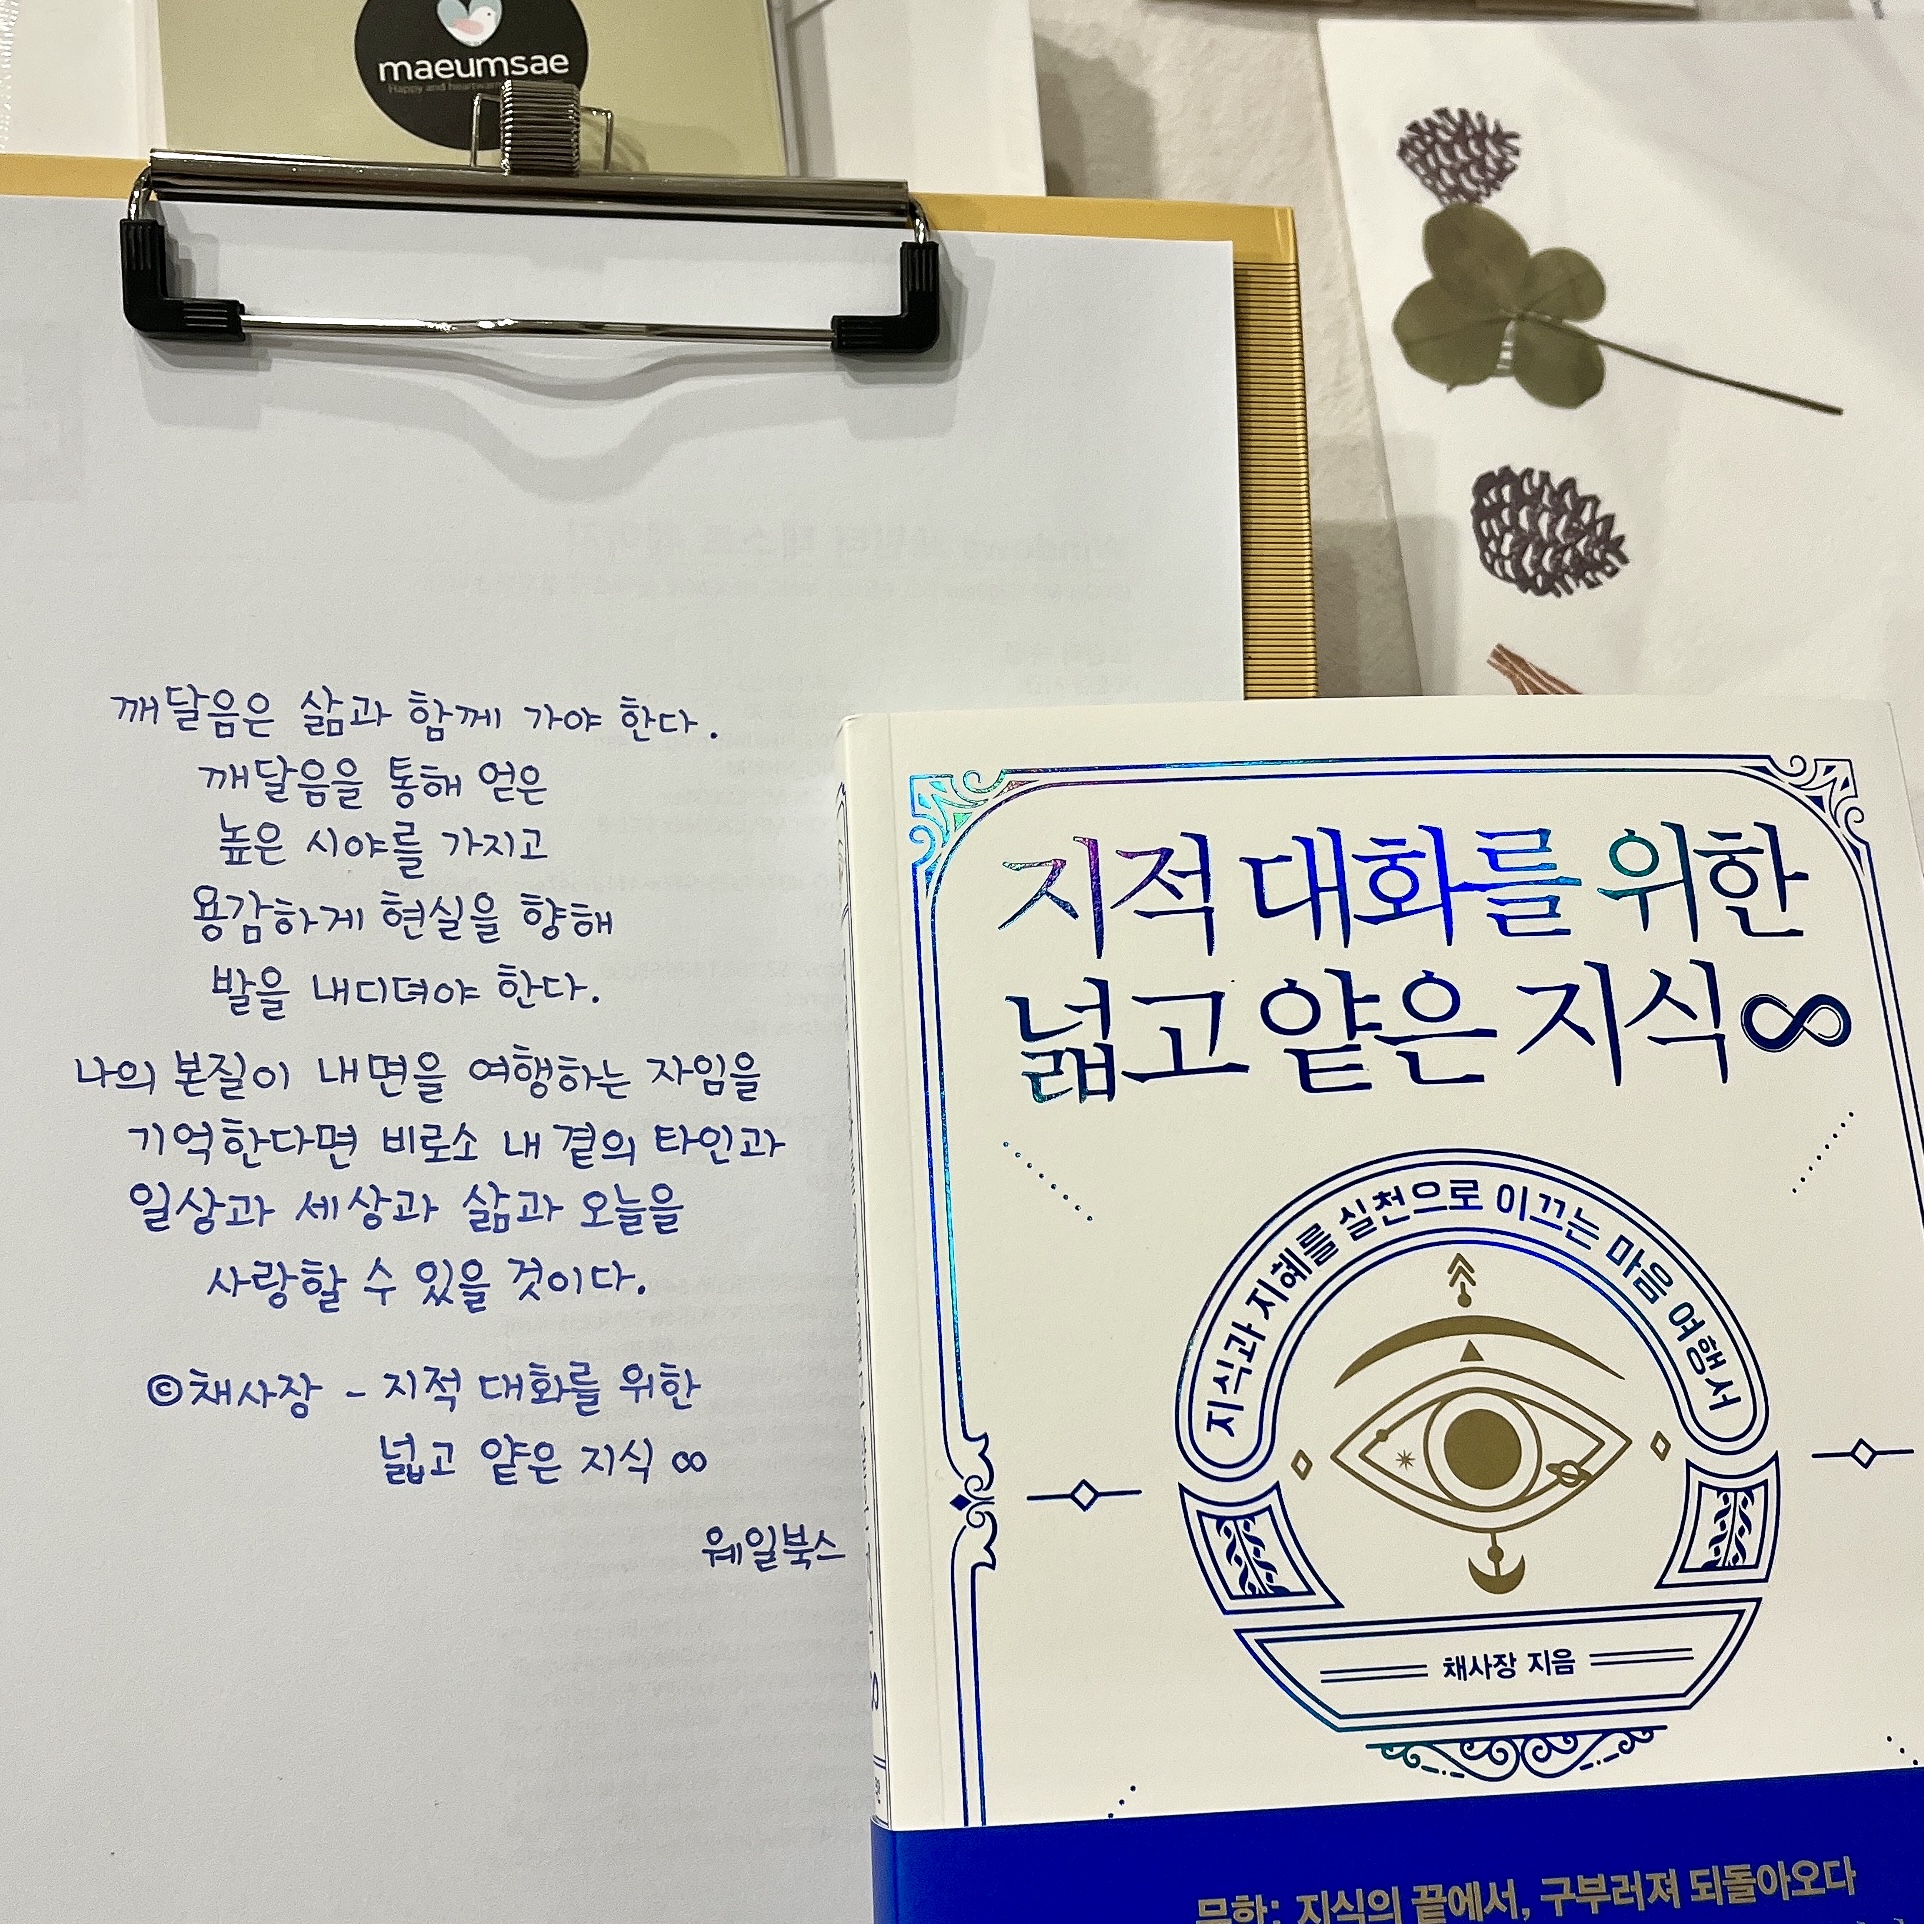 maeumsae
깨달음은 삶과 함께 가야 한다.
깨달음을 통해 얻은
높은 시야를 가지고
용감하게 현실을 향해
발을 내디뎌야 한다.
나의 본질이 내면을 여행하는 자임을
기억한다면 비로소 내 곁의 타인과
일상과 세상과 삶과 오늘을
사랑할 수 있을 것이다.
©채사장 - 지적 대화를 위한
넓고 얕은 지식 ∞
웨일북스
지적 대화를 위한
넓고 얕은 지식∞
지식과 지혜를 실천으로 이끄는 마음 여행서
채사장 지음
무한: 지식의 끝에서, 구부러져 되돌아오다